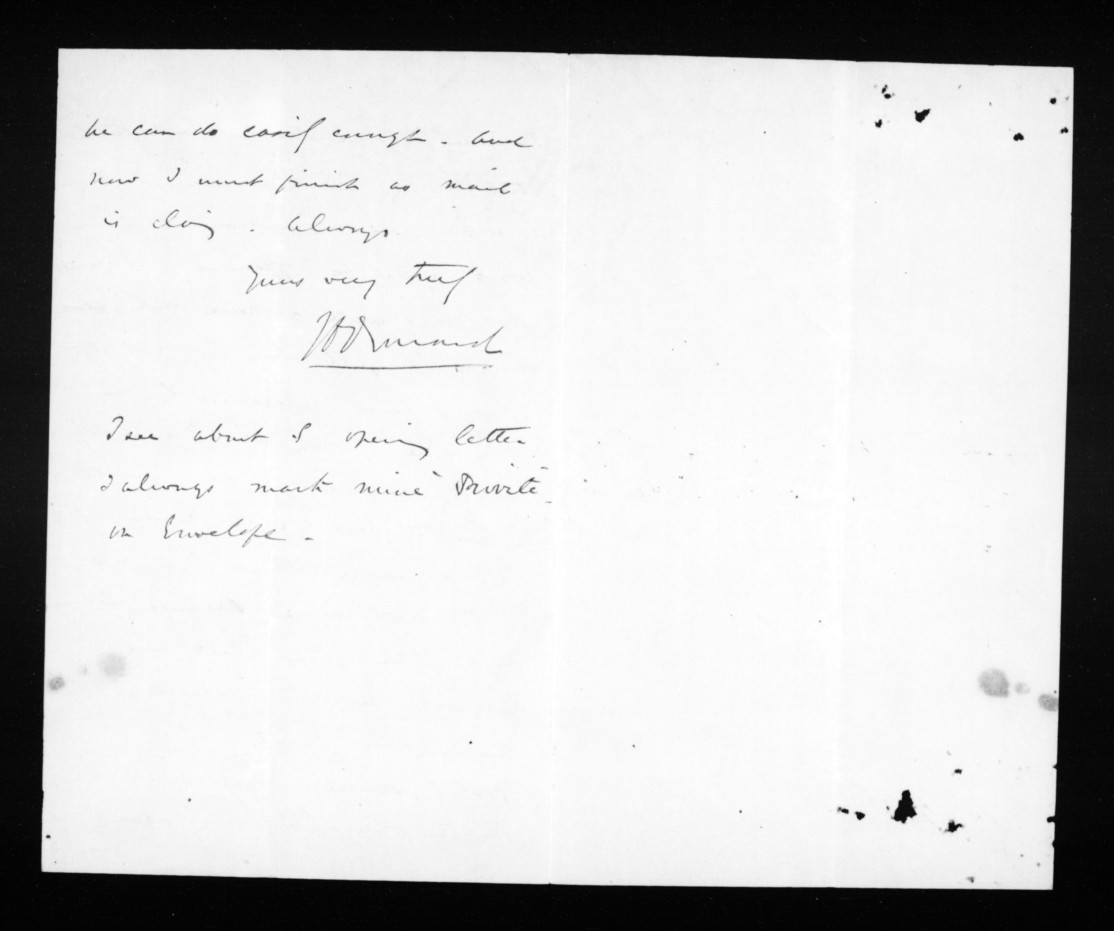 he can do easily enough - and
now I must finish as mail
is closing. Always
Yours very truly
I see about S opening letter
I always mark mine "Private"
on Envelope -